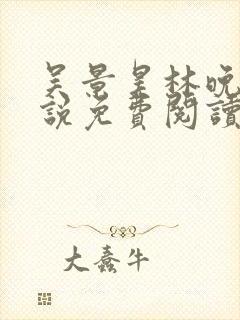 吴景星林晚
說免費閱讀
大蠢牛